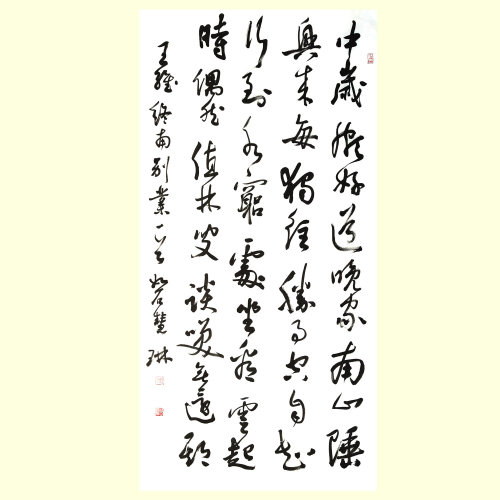 中歲頗好道晚家南山陲
興來每獨往勝事空自知
行到水窮處坐看雲起
時偶然值林叟談笑無還期
王維終南別業一首 慧琳